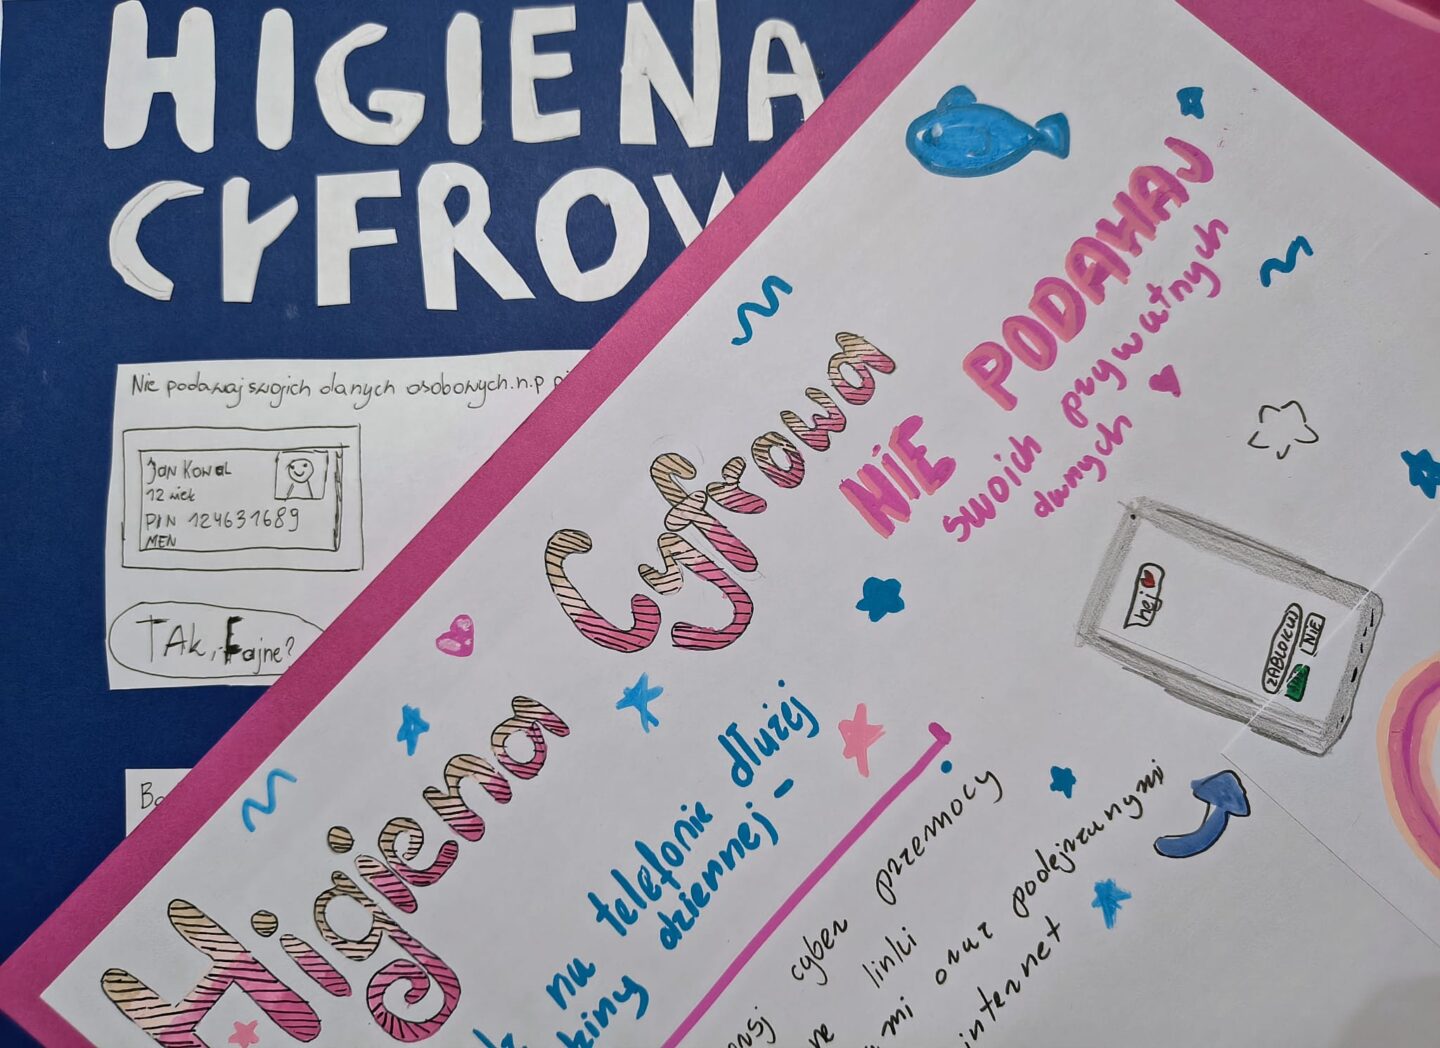 HIGIENA
CYFROW
Nie podawaj swojich danych osobowych.n.p
Jan Kowal
12 wiek
PIN 124631689
MEN
TAk, Fajne?
Higiena Cyfrowa
NIE PODAWAJ
swoich prywatnych
danych
hej
ZABLOKUJ
NIE
na telefonie dłużej
dziennej -
cyber przemocy
linki
oraz podejrzanymi
internet